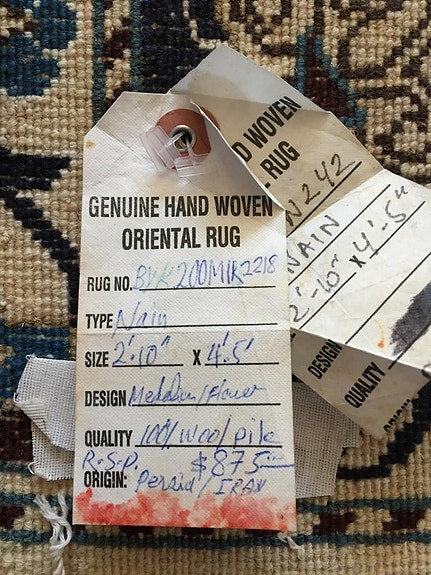 GENUINE HAND WOVEN
ORIENTAL RUG
RUG NO. BVK200MIR2218
TYPE Nain
SIZE 2'.10" X 4'.5'
DESIGN Medalun/Flower
QUALITY 100/ Wool pile
R.S.P. $875
ORIGIN: Persia/IRAN
D WOVEN
RUG
W242
NAIN
2'-10" x 4'-5"
DESIGN
QUALITY